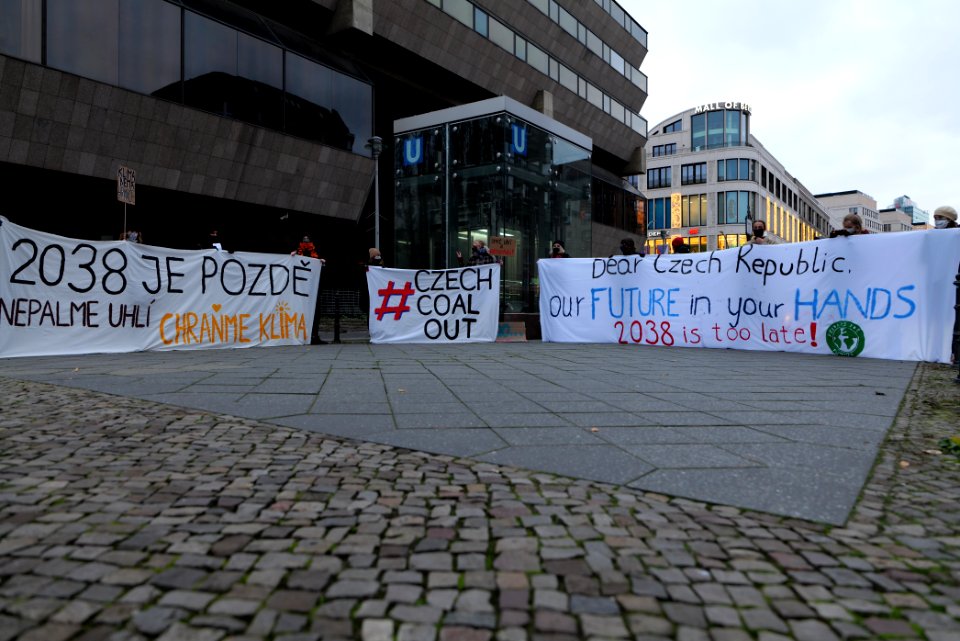 2038 JE POZDĚ
NEPALME UHLÍ
CHRAŇME KLIMA
#CZECH
COAL
OUT
Dear Czech Republic,
our FUTURE in your HANDS
2038 is too late!
U
U
MALL OF